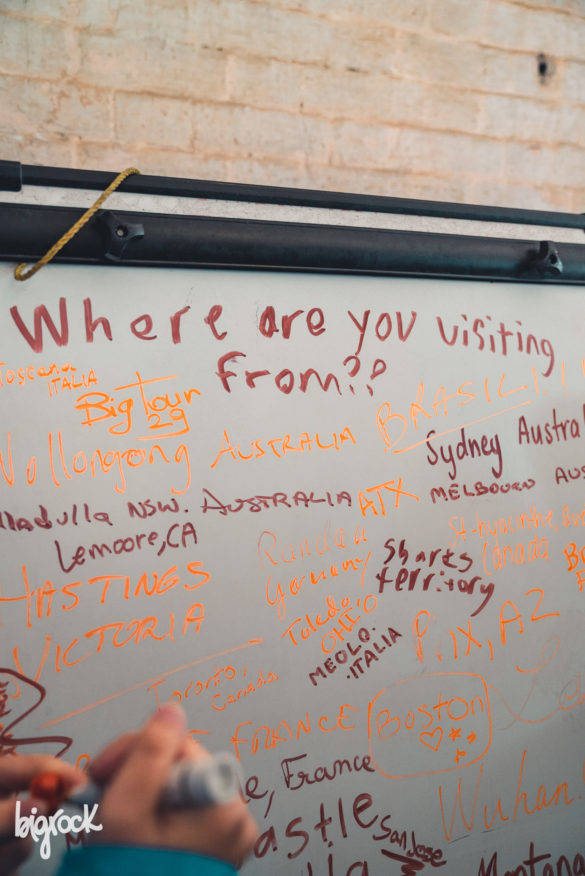 Where are you visiting
from??
Toscana
ITALIA
Big Tour
29
BRASIL!!!
Wollongong AUSTRALIA
Sydney Austral
lladulla NSW. AUSTRALIA
ATX
MELBOURO AUS
Lemoore, CA
St-hyacinthe,
Canada
Germany
Sharks
territory
HASTINGS
VICTORIA
Toledo,
OHIO
MEOLO.
ITALIA
PHX, AZ
Toronto,
Canada
FRANCE
Boston
e, France
Wuhan!
astle
San Jose
lla
Montana
bigrock